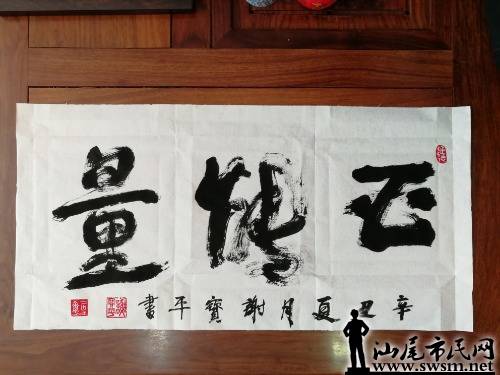 正能量
辛丑夏月謝寶平書
汕尾市民网
www.swsm.net